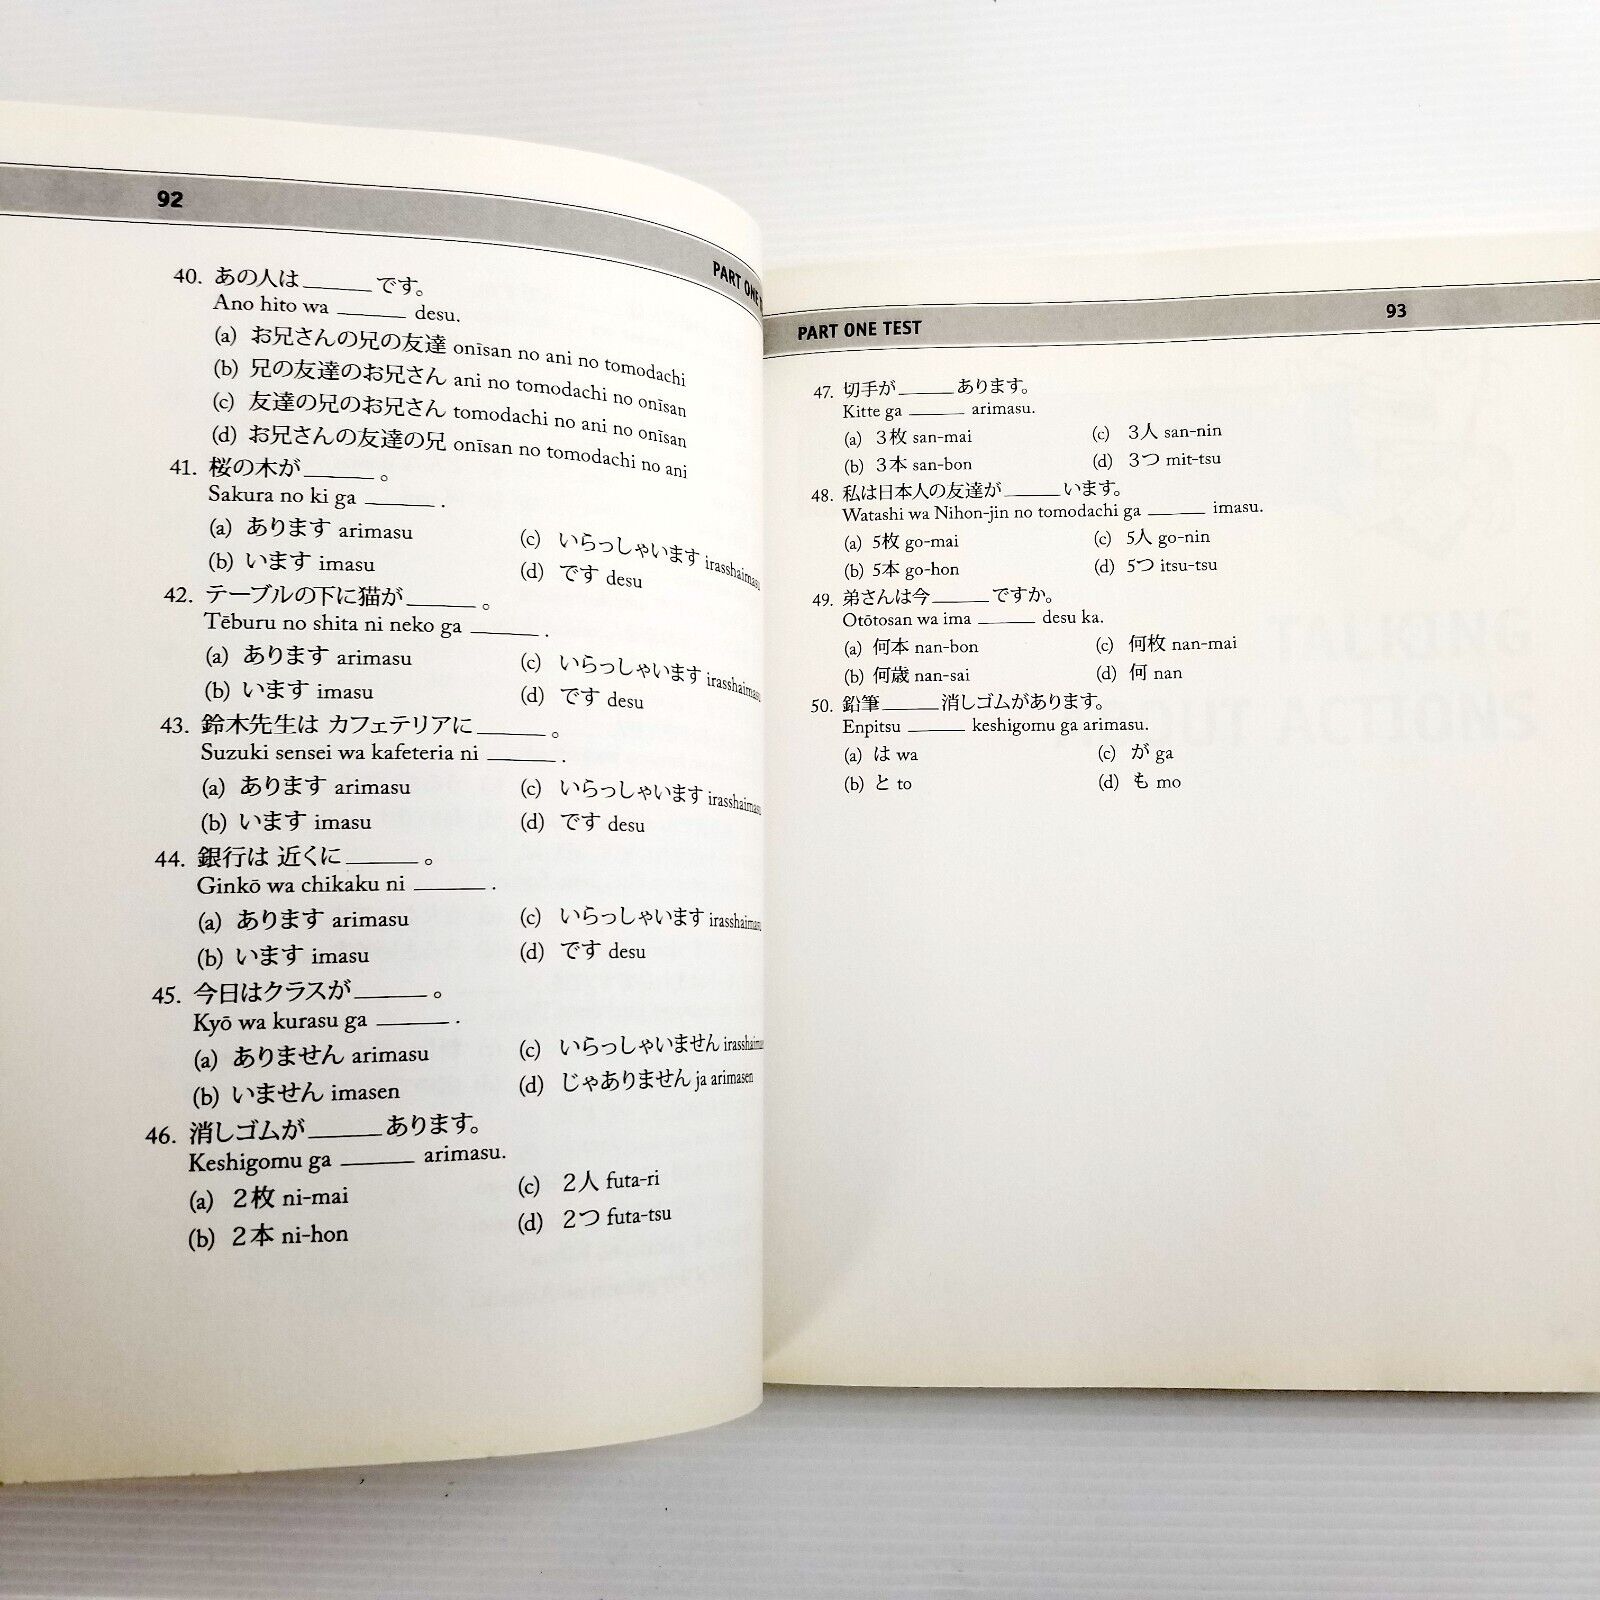 92
PART ONE
40. あの人は______です。
Ano hito wa ______ desu.
(a) お兄さんの兄の友達 onīsan no ani no tomodachi
(b) 兄の友達のお兄さん ani no tomodachi no onīsan
(c) 友達の兄のお兄さん tomodachi no ani no onīsan
(d) お兄さんの友達の兄 onīsan no tomodachi no ani
41. 桜の木が______。
Sakura no ki ga ______.
(a) あります arimasu
(b) います imasu
(c) いらっしゃいます irasshaimasu
(d) です desu
42. テーブルの下に猫が______。
Tēburu no shita ni neko ga ______.
(a) あります arimasu
(b) います imasu
(c) いらっしゃいます irasshaimasu
(d) です desu
43. 鈴木先生は カフェテリアに______。
Suzuki sensei wa kafeteria ni ______.
(a) あります arimasu
(b) います imasu
(c) いらっしゃいます irasshaimasu
(d) です desu
44. 銀行は 近くに______。
Ginkō wa chikaku ni ______.
(a) あります arimasu
(b) います imasu
(c) いらっしゃいます irasshaimasu
(d) です desu
45. 今日はクラスが______。
Kyō wa kurasu ga ______.
(a) ありません arimasu
(b) いません imasen
(c) いらっしゃいません
(d) じゃありません ja arimasen
46. 消しゴムが______あります。
Keshigomu ga ______ arimasu.
(a) 2枚 ni-mai
(b) 2本 ni-hon
(c) 2人 futa-ri
(d) 2つ futa-tsu
PART ONE TEST
93
47. 切手が______あります。
Kitte ga ______ arimasu.
(a) 3枚 san-mai
(b) 3本 san-bon
(c) 3人 san-nin
(d) 3つ mit-tsu
48. 私は日本人の友達が______います。
Watashi wa Nihon-jin no tomodachi ga ______ imasu.
(a) 5枚 go-mai
(b) 5本 go-hon
(c) 5人 go-nin
(d) 5つ itsu-tsu
49. 弟さんは今______ですか。
Otōtosan wa ima ______ desu ka.
(a) 何本 nan-bon
(b) 何歳 nan-sai
(c) 何枚 nan-mai
(d) 何 nan
50. 鉛筆______消しゴムがあります。
Enpitsu ______ keshigomu ga arimasu.
(a) は wa
(b) と to
(c) が ga
(d) も mo